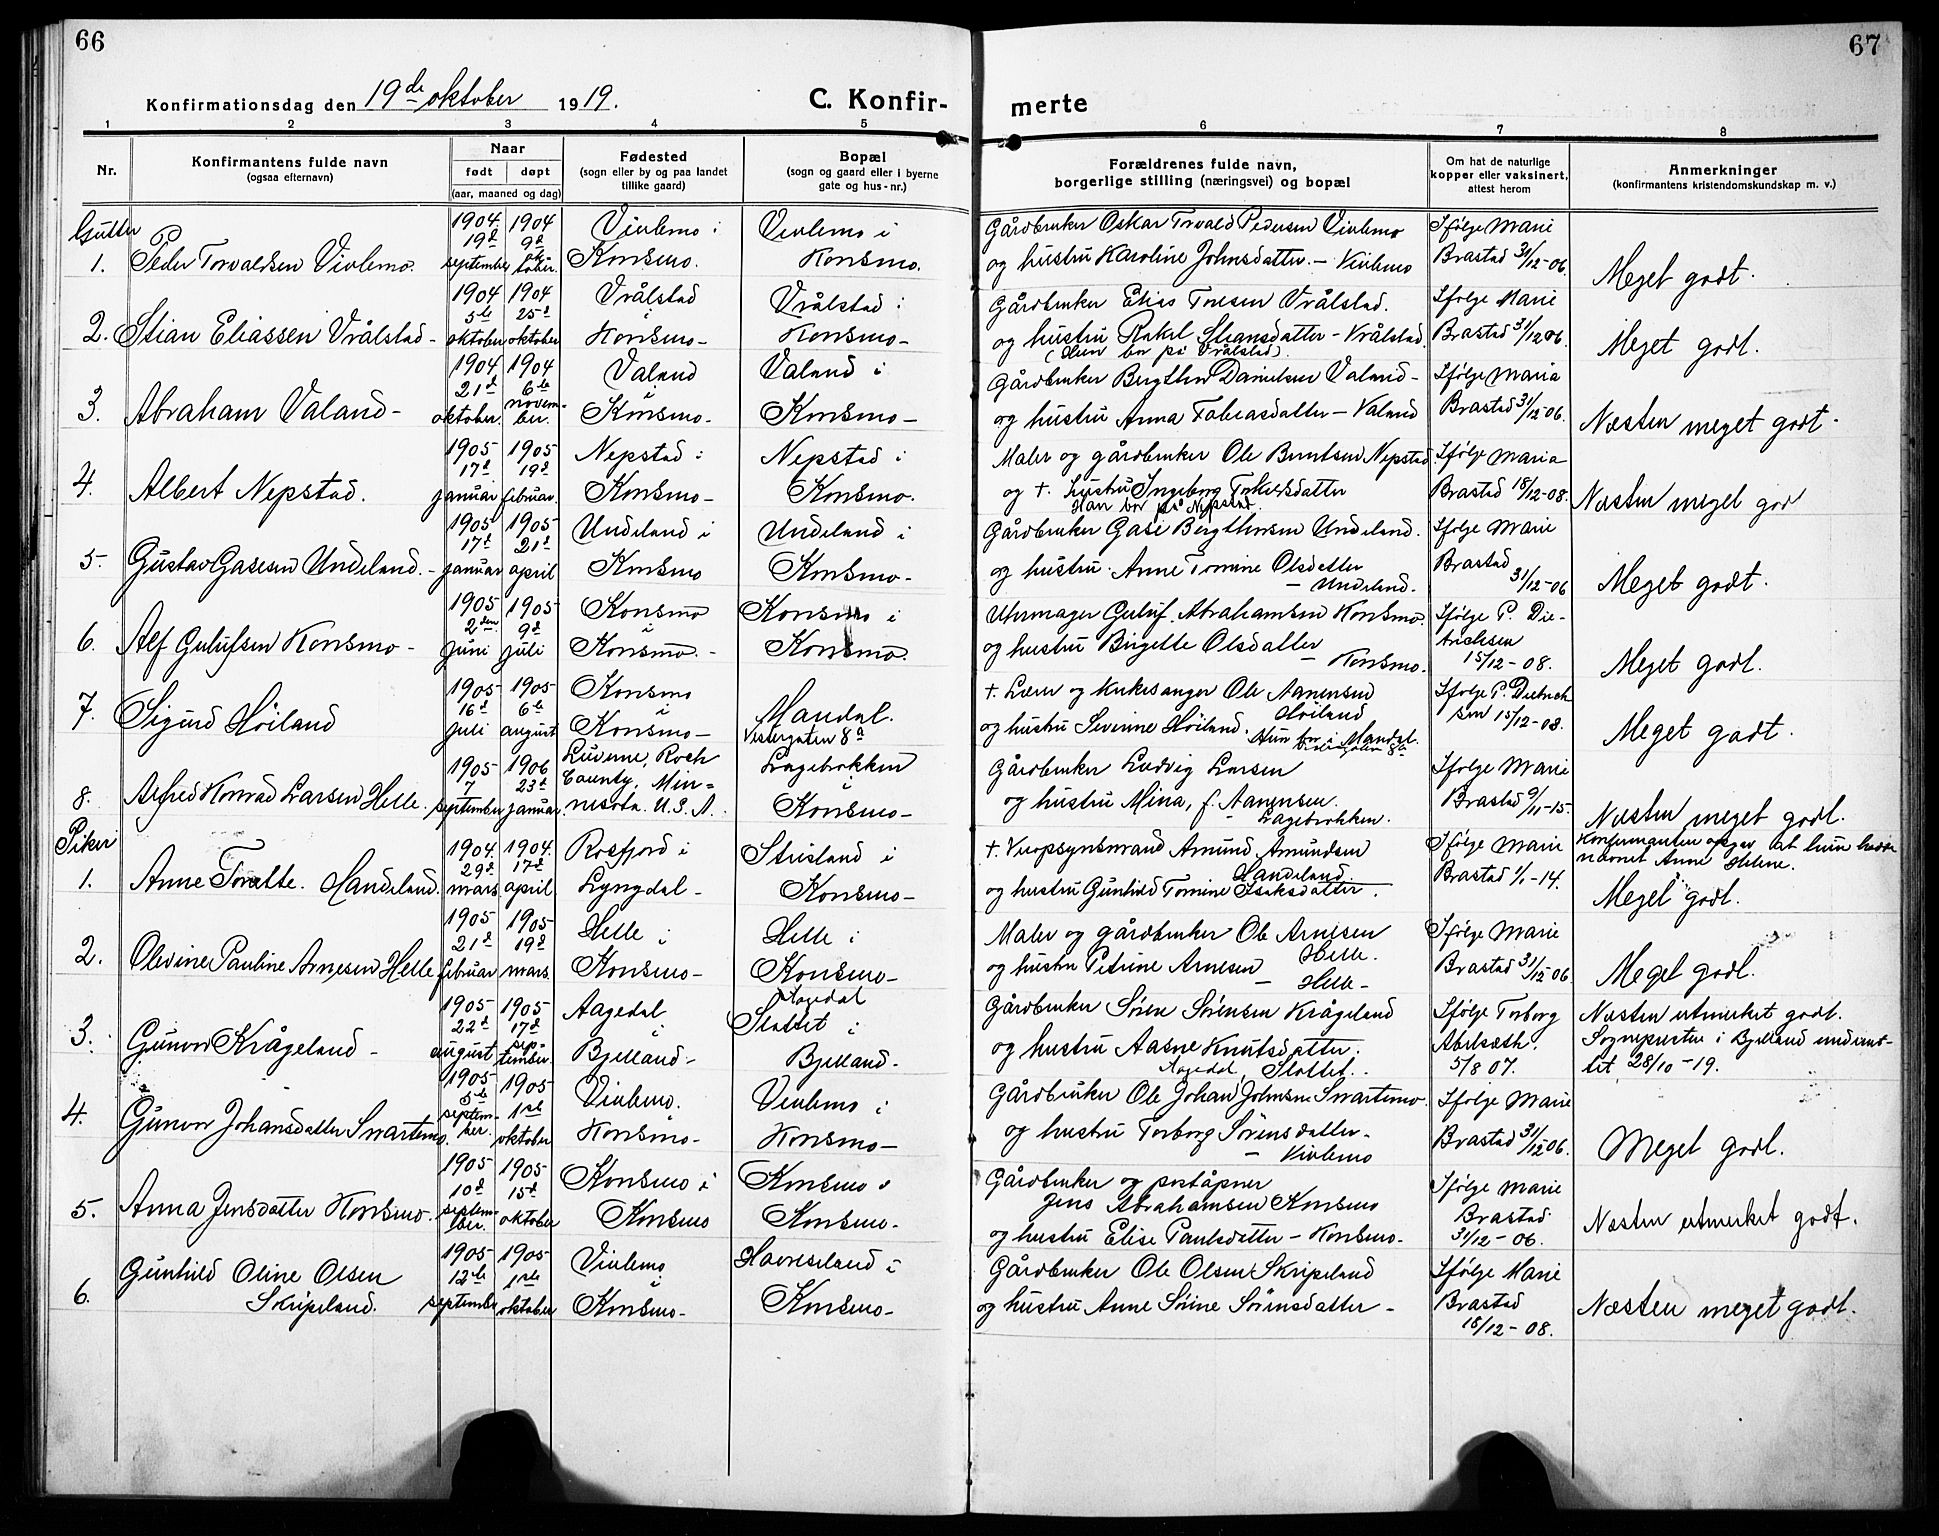 66
67
Konfirmationsdag den 19de oktober 1919.
C. Konfir-
merte
1 2 3 4 5 6 7 8
Nr.
Konfirmantens fulde navn
(ogsaa efternavn)
Naar
født døpt
(aar, maaned og dag)
Fødested
(sogn eller by og paa landet
tillike gaard)
Bopæl
(sogn og gaard eller i byerne
gate og hus-nr.)
Forældrenes fulde navn,
borgerlige stilling (næringsvei) og bopæl
Om hat de naturlige
kopper eller vaksinert,
attest herom
Anmerkninger
(konfirmantens kristendomskundskap m. v.)
Gutter
1. Peder Torvaldsen Vivlemo.
1904 19d september
1904 9d oktober.
Vivlemo i
Konsmo.
Vivlemo i
Konsmo.
Gårdbruker Oskar Torvald Pedersen Vivlemo
og hustru Karoline Johnsdatter. - Vivlemo
Ifølge Marie
Brastad 31/12-06.
Meget godt.
2. Stian Eliassen Vrålstad -
1904 5te oktober
1904 25d oktober
Vrålstad
i
Konsmo-
Vrålstad i
Konsmo-
Gårdbruker Elias Tonesen Vrålstad.
og hustru Rakel Stiansdatter - Vrålstad.
(Hun bor på Vrålstad).
Ifølge Marie
Brastad 31/12 06.
Meget godt.
3. Abraham Valand-
1904 21d oktober.
1904 6te novem-
ber.
Valand
i
Konsmo-
Valand i
Konsmo-
Gårdbruker Bergthor Danielsen Valand-
og hustru Anna Tobiasdatter - Valand
Ifølge Maria
Brastad 31/12-06.
Næsten meget godt-
4. Albert Nepstad.
1905 17d januar
1905 19d februar.
Nepstad i
Konsmo-
Nepstad i
Konsmo.
Maler og gårdbruker Ole Berntsen Nepstad.
og †. hustru Ingeborg Torkelsdatter
Han bor på Nepstad.
Ifølge Maria
Brastad 18/12-08.
Næsten meget god
5. Gustav Gasesen Undeland. -
1905 17d januar
1905 21d april
Undeland i
Konsmo
Undeland i
Konsmo-
Gårdbruker Gase Bergthorsen Undeland.
og hustru Anne Tomine Olsdatter
- Undeland.
Ifølge Marie
Brastad
31/12-06
Meget godt.
6. Alf Gulufsen Konsmo -
1905 2den juni
1905 9d juli
Konsmo
i
Konsmo. -
Konsmo i
Konsmo.
Uhrmager Guluf Abrahamsen Konsmo.
og hustru Birgitte Olsdatter
- Konsmo.
Ifølge P. Die-
trichsen
15/12-08.
Meget godt.
7. Sigurd Høiland
1905 16d juli
1905 6te august
Konsmo
i
Konsmo-
Mandal.
Vestergaten 8a
†. Lærer og kirkesanger Ole Aanensen
Høiland
og hustru Severine Høiland. Hun bor i Mandal.
Vestergaten 8a
Ifølge P. Dietrich
sen 15/12-08.
Meget godt.
8. Alfred Konrad Larsen Helle.
1905 7 september
1906 23d januar.
Luverne, Roch
County, Min-
nesota. U.S.A.
Lagebrokken
i
Konsmo-
Gårdbruker Ludvig Larsen
og hustru Mina, f. Aanensen.
- Lagebrokken.
Ifølge Marie
Brastad 9/11-15.
Næsten meget godt.
Piker
1. Anne Toralte. Handeland.
1904. 29d mars.
1904. 17d april
Rosfjord i
Lyngdal-
Strisland i
Konsmo-
†. Veiopsynsmand Amund Amundsen
Handeland.
og hustru Gunhild Tomine Isaksdatter.
Ifølge Marie
Brastad 1/1-14.
Konfirmanten opgav at hun hadde
navnet Anne Helene.
Meget godt.
2. Olevine Pauline Arnesen Helle
1905 21d februar
1905 19d mars.
Helle i
Konsmo-
Helle i
Konsmo-
Maler og gårdbruker Ole Arnesen
Helle.
og hustru Petrine Arnesen
- Helle-
Ifølge Marie
Brastad 31/12-06.
Meget godt.
3. Gunvor Krågeland -
1905 22d august
1905 17d sep-
tember.
Aagedal
i
Bjelland-
Aagedal
Slottet i
Bjelland-
Gårdbruker Søren Sørensen Krågeland
og hustru Aasne Knutsdatter.
Aagedal, Slottet.
Ifølge Torborg
Abelsæth.
5/8 07.
Næsten utmerket godt.
Sognepresten i Bjelland underret-
tet 28/10-19.
4. Gunvor Johansdatter Svartemo.
1905 5te septem-
ber.
1905 1ste oktober
Vivlemo.
Konsmo-
Vivlemo i
Konsmo-
Gårdbruker Ole Johan Johnsen Svartemo.
og hustru Torborg Sørensdatter-
- Vivlemo
Ifølge Marie
Brastad 31/12 06.
Meget godt.
5. Anna Jensdatter Konsmo.
1905 10d septem-
ber.
1905 15d oktober
Konsmo i
Konsmo
Konsmo i
Konsmo-
Gårdbruker og poståpner
Jens Abrahamsen Konsmo
og hustru Elise Paulsdatter - Konsmo-
Ifølge Marie
Brastad
31/12-06.
Næsten utmerket godt.
6. Gunhild Oline Olsen
Skripeland.
1905 12te september
1905 1ste oktober
Vivlemo
i
Konsmo-
Havreseland i
Konsmo-
Gårdbruker Ole Olsen Skripeland
og hustru Anne Serine Sørensdatter-
Ifølge Marie
Brastad
18/12-08.
Næsten meget godt.